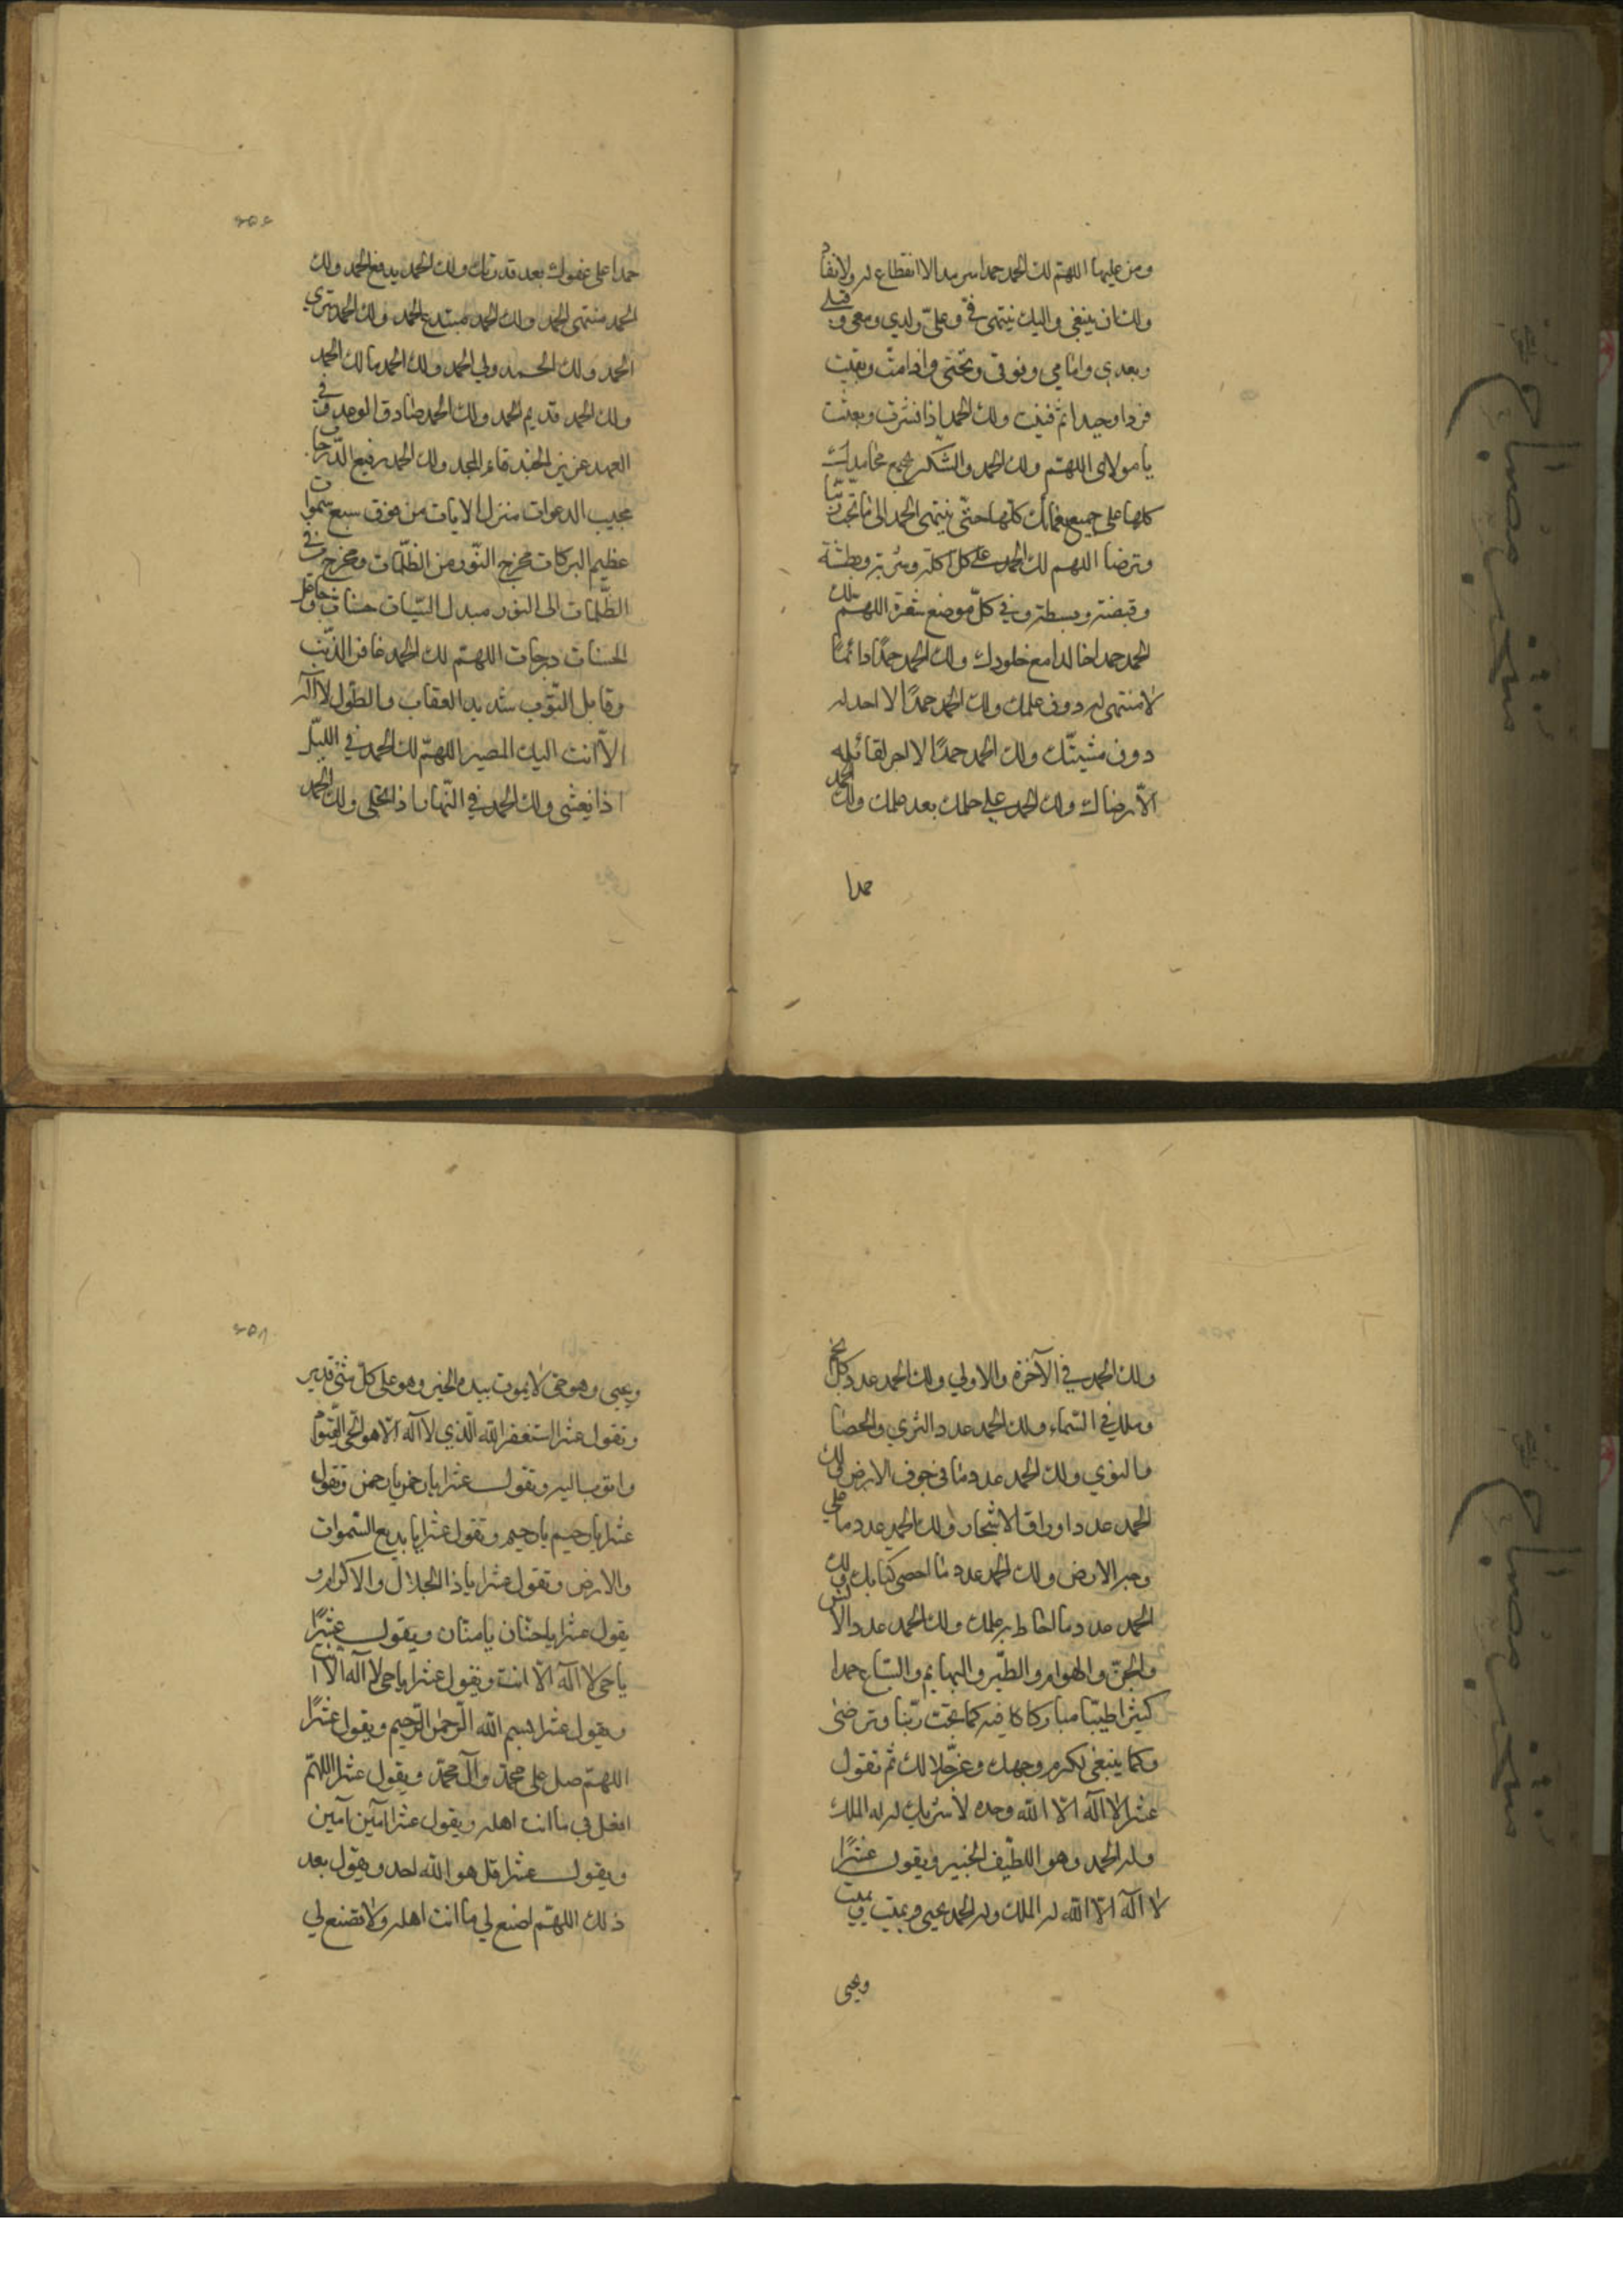 ومن عليها اللهم لك الحمد حمدا سرمدا لا انقطاع له ولا نفاد
ولك ان ينبغي واليك ينتهي في وعلي ولدي ومعي وقبلي
وبعدي وامامي وفوقي وتحتي واذا مت وبقيت
فردا وحيدا ثم فنيت ولك الحمد اذا نشرت وبعثت
يا مولاي اللهم ولك الحمد والشكر بجميع محامدك
كلها على جميع نعمائك كلها حتى ينتهي الحمد الى ما تحب ربنا
وترضا اللهم لك الحمد على كل اكلة وشربة وبطشة
وقبضة وبسطة وفي كل موضع شعرة اللهم لك
الحمد حمدا خالدا مع خلودك ولك الحمد حمدًا دائمًا
لا منتهى له دون علمك ولك الحمد حمدًا لا احد له
دون مشيتك ولك الحمد حمدًا لا اجر لقائله
الا رضاك ولك الحمد على حلمك بعد علمك ولك الحمد
حمدا
حمدا على عفوك بعد قدرتك ولك الحمد بديع الحمد ولك
الحمد منتهى الحمد ولك الحمد مبتدع الحمد ولك الحمد مشتري
الحمد ولك الحمد ولي الحمد ولك الحمد مالك الحمد
ولك الحمد قديم الحمد ولك الحمد صادق الوعد وفي
العهد عزيز الجند قائم المجد ولك الحمد رفيع الدرجات
مجيب الدعوات منزل الايات من فوق سبع سموات
عظيم البركات مخرج النور من الظلمات ومخرج من في
الظلمات الى النور مبدل السيات حسنات وجاعل
الحسنات درجات اللهم لك الحمد غافر الذنب
وقابل التوب شديد العقاب ذالطول لا آله
الا انت اليك المصير اللهم لك الحمد في الليل
اذا يغشى ولك الحمد في النهار اذا تجلى ولك الحمد
ولك الحمد في الآخرة والاولي ولك الحمد عدد كل نجم
وملك في السماء ولك الحمد عدد الثري والحصا
والنوي ولك الحمد عدد ما في جوف الارض ولك
الحمد عدد اوراق الاشجار ولك الحمد عدد ما على
وجه الارض ولك الحمد عدد ما احصى كتابك ولك
الحمد عدد ما احاط به علمك ولك الحمد عدد الانس
والجن والهوام والطير والبهايم والسباع حمدا
كثيرا طيبا مباركا فيه كما تحب ربنا وترضى
وكما ينبغي لكرم وجهك وعز جلالك ثم تقول
عشرا لا اله الا الله وحده لا شريك له له الملك
وله الحمد وهو اللطيف الخبير ويقول عشرًا
لا آله الا الله له الملك وله الحمد يحيي ويميت ويميت
ويحيى
ويحيى وهو حي لا يموت بيده الخير وهو على كل شئ قدير
وتقول عشرا استغفر الله الذي لا آله الا هو الحي القيوم
واتوب اليه وتقول عشرا يا رحمن يا رحمن وتقول
عشرا يا رحيم يا رحيم وتقول عشرا يا بديع السموات
والارض وتقول عشرا يا ذا الجلال والاكرام و
يقول عشرا يا حنان يا منان ويقول عشرًا
يا حي لا آله الا انت ويقول عشرا يا حي لا آله الا انت
ويقول عشرا بسم الله الرحمن الرحيم ويقول عشرًا
اللهم صل على محمد وآل محمد ويقول عشرا اللهم
افعل بي ما انت اهله ويقول عشرا آمين آمين
ويقول عشرا قل هو الله احد ويقول بعد
ذلك اللهم اصنع لي ما انت اهله ولا تصنع لي